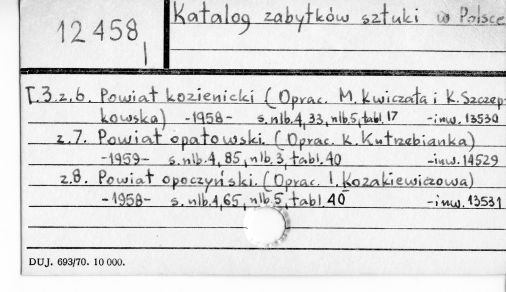 12458
I
Katalog zabytków sztuki w Polsce
T.3.z.6. Powiat kozienicki (Oprac. M. Kwiczała i K. Szczep-
kowska) -1958- s.nlb.4, 33, nlb.5, tabl. 17 -inw. 13530
z.7. Powiat opatowski. (Oprac. K. Kutrzebianka)
-1959- s.nlb.4, 85, nlb.3, tabl. 40 -inw. 14529
z.8. Powiat opoczyński. (Oprac. I. Kozakiewiczowa)
-1958- s.nlb.4, 65, nlb.5, tabl. 40 -inw. 13531
DUJ. 693/70. 10 000.